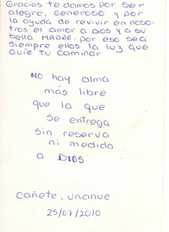 Gracias te damos por ser
alegre, generoso y por
la ayuda de revivir en noso-
tros el amor a DIOS y a su
bella MADRE. por eso sea
siempre ellos la luz que
guie tu caminar
NO hay alma
más libre
que la que
se entrega
sin reserva
ni medida
a DIOS
cañete, unanue
25/07/2010